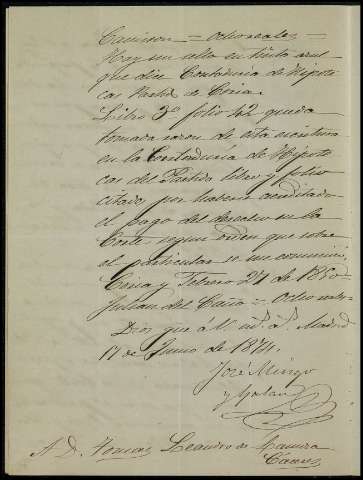 Carrion = Ocho reales =
Hay un sello en tinta azul
que dice Contaduria de Hipote
cas Partido de Coria =
Libro 3º folio 42 queda
tomada razon de esta escritura
en la Contaduría de Hipote
cas del Partido libro y folio
citado, por haberse acreditado
el pago del derecho en la
Corte segun orden que sobre
el particular se me comunicó,
Coria y Febrero 27 de 1850 =
Julian del Caño = Ocho reales =
Dios que à V. ms. as. Madrid
17 de Junio de 1871.
José Mingo
y Galan
A D. Tomas Leandro de
Caceres